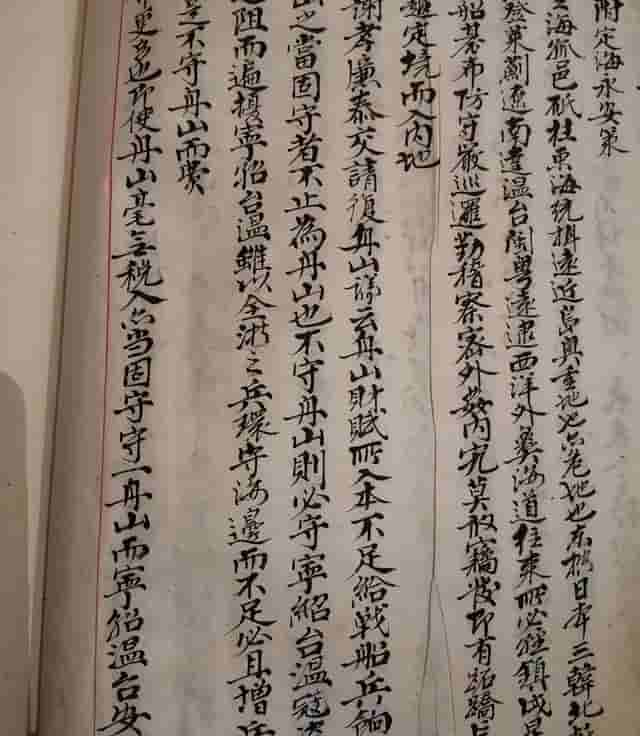 附定海永安策
海孤邑砥柱東海統揖遠近島奧重地也亦危地也东控日本三韓北
登萊薊遼南達溫台閩粤遠逮西洋外彝海道往來所必經鎮戍
船碁布防守嚴巡邏勤稽察密外姦內宄莫敢竊发即有跖蹻
定境而入內地
謝孝廉泰交請復舟山議云舟山財賦所入本不足給戰船兵餉
山之當固守者不止為舟山也不守舟山則必守寧紹台溫寇
阻而遍擾寧紹台溫雖以全浙之兵環守海邊而不足必且增兵
是不守舟山而费
更多也即使舟山毫无稅入亦当固守守一舟山而寧紹溫台安